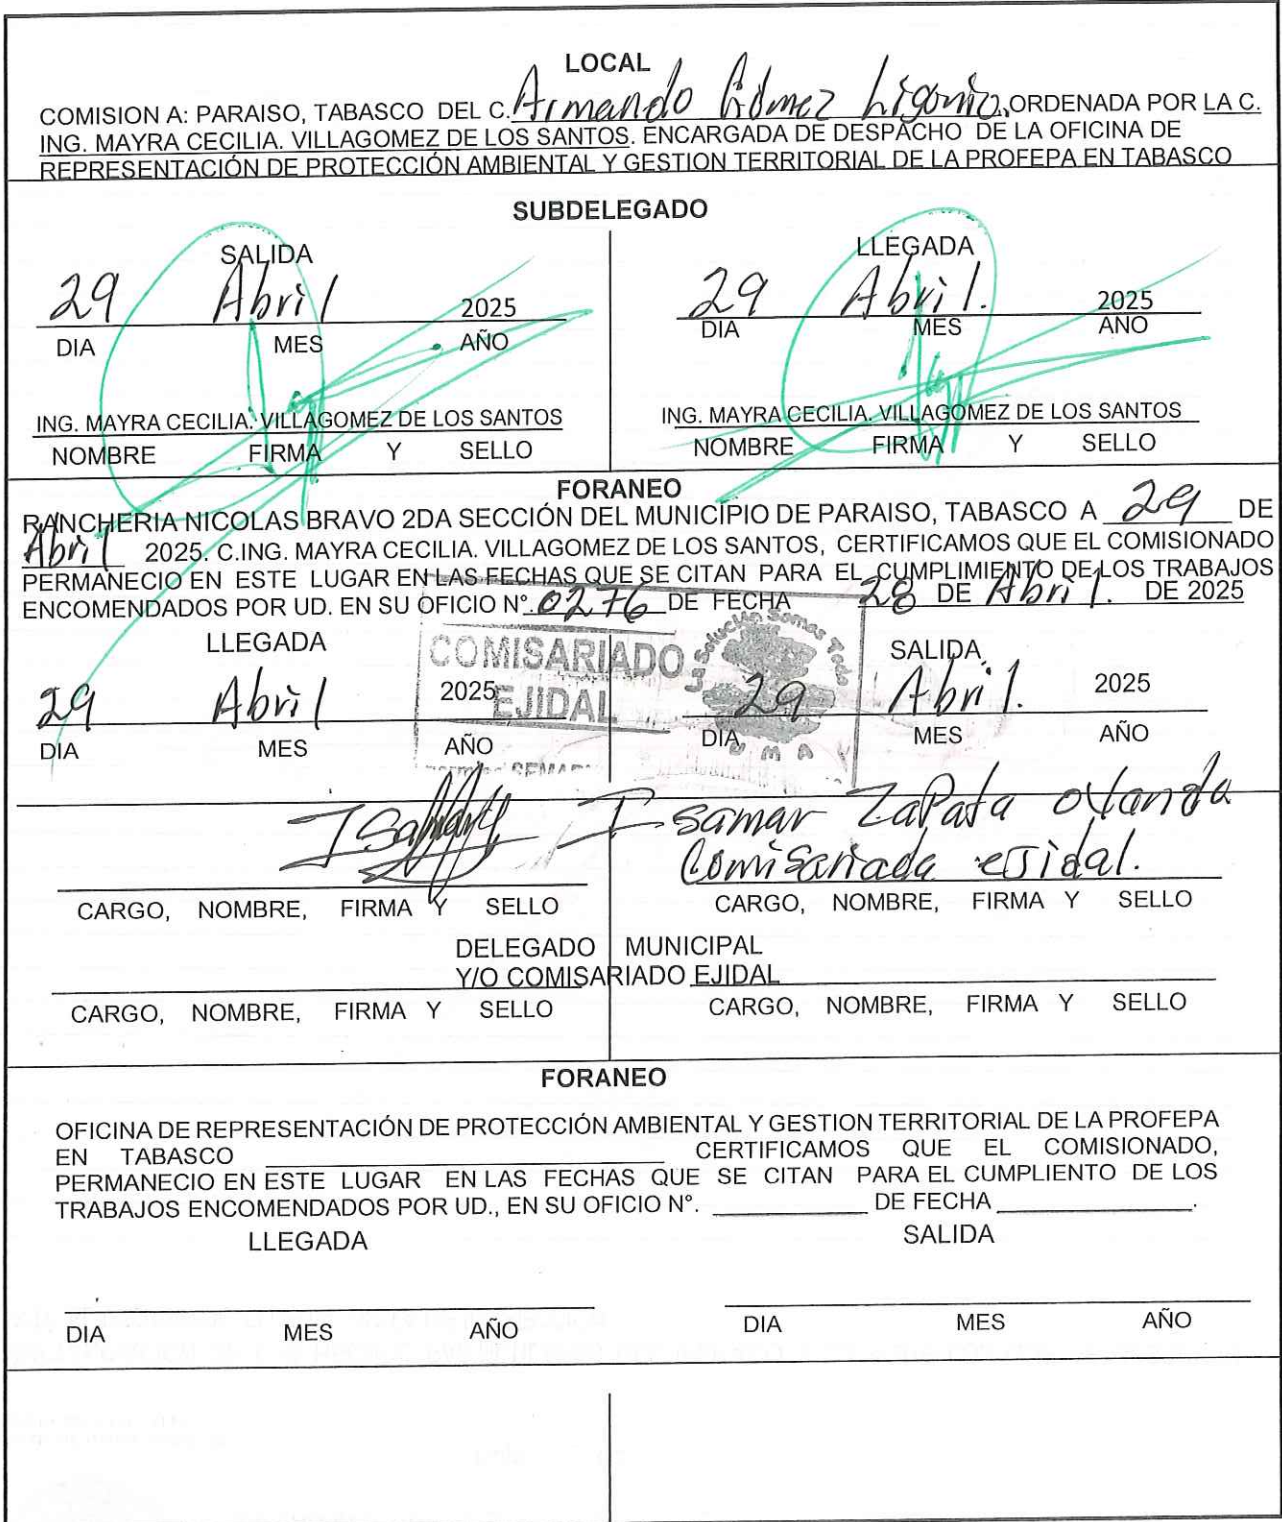 LOCAL
COMISION A: PARAISO, TABASCO DEL C. Armando Gómez Ligonio, ORDENADA POR LA C.
ING. MAYRA CECILIA. VILLAGOMEZ DE LOS SANTOS. ENCARGADA DE DESPACHO DE LA OFICINA DE
REPRESENTACIÓN DE PROTECCIÓN AMBIENTAL Y GESTION TERRITORIAL DE LA PROFEPA EN TABASCO
SUBDELEGADO
SALIDA LLEGADA
29 Abril 2025 29 Abril. 2025
DIA MES AÑO DIA MES AÑO
ING. MAYRA CECILIA. VILLAGOMEZ DE LOS SANTOS ING. MAYRA CECILIA. VILLAGOMEZ DE LOS SANTOS
NOMBRE FIRMA Y SELLO NOMBRE FIRMA Y SELLO
FORANEO
RANCHERIA NICOLAS BRAVO 2DA SECCIÓN DEL MUNICIPIO DE PARAISO, TABASCO A 29 DE
Abril 2025. C.ING. MAYRA CECILIA. VILLAGOMEZ DE LOS SANTOS, CERTIFICAMOS QUE EL COMISIONADO
PERMANECIO EN ESTE LUGAR EN LAS FECHAS QUE SE CITAN PARA EL CUMPLIMIENTO DE LOS TRABAJOS
ENCOMENDADOS POR UD. EN SU OFICIO N°. 0276 DE FECHA 28 DE Abril. DE 2025
LLEGADA SALIDA
COMISARIADO
EJIDAL
La Solución Somos Todos
U M A
29 Abril 2025 29 Abril. 2025
DIA MES AÑO DIA MES AÑO
Isamar Zapata olanda
Comisariada esidal.
CARGO, NOMBRE, FIRMA Y SELLO CARGO, NOMBRE, FIRMA Y SELLO
DELEGADO MUNICIPAL
Y/O COMISARIADO EJIDAL
CARGO, NOMBRE, FIRMA Y SELLO CARGO, NOMBRE, FIRMA Y SELLO
FORANEO
OFICINA DE REPRESENTACIÓN DE PROTECCIÓN AMBIENTAL Y GESTION TERRITORIAL DE LA PROFEPA
EN TABASCO CERTIFICAMOS QUE EL COMISIONADO,
PERMANECIO EN ESTE LUGAR EN LAS FECHAS QUE SE CITAN PARA EL CUMPLIENTO DE LOS
TRABAJOS ENCOMENDADOS POR UD., EN SU OFICIO N°. DE FECHA .
LLEGADA SALIDA
DIA MES AÑO DIA MES AÑO